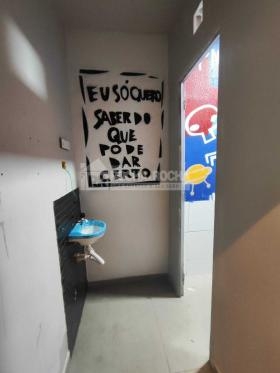 EU SÓ QUERO
SABER DO
QUE
PODE
DAR
CERTO